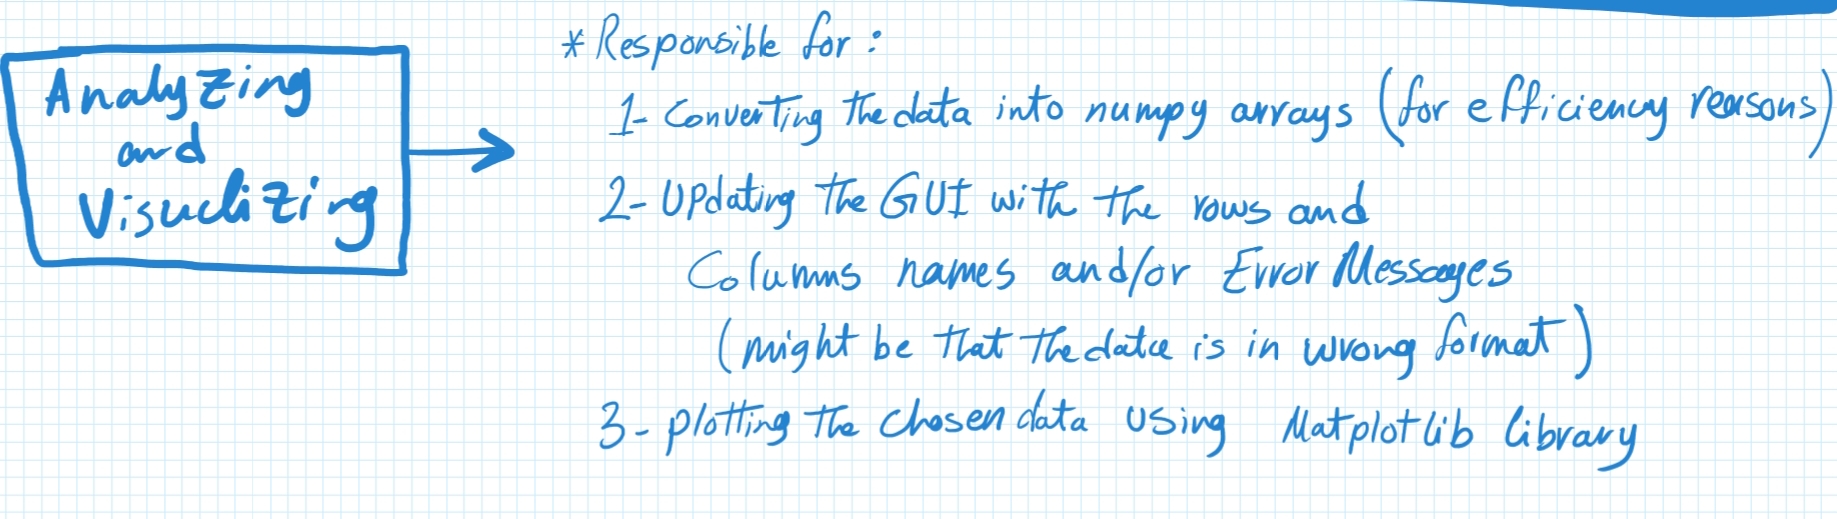 Analyzing
and
Visualizing
* Responsible for :
1- Converting the data into numpy arrays (for efficiency reasons)
2- Updating the GUI with the rows and
Columns names and/or Error Messages
(might be that the data is in wrong format)
3- plotting the chosen data using Matplotlib library